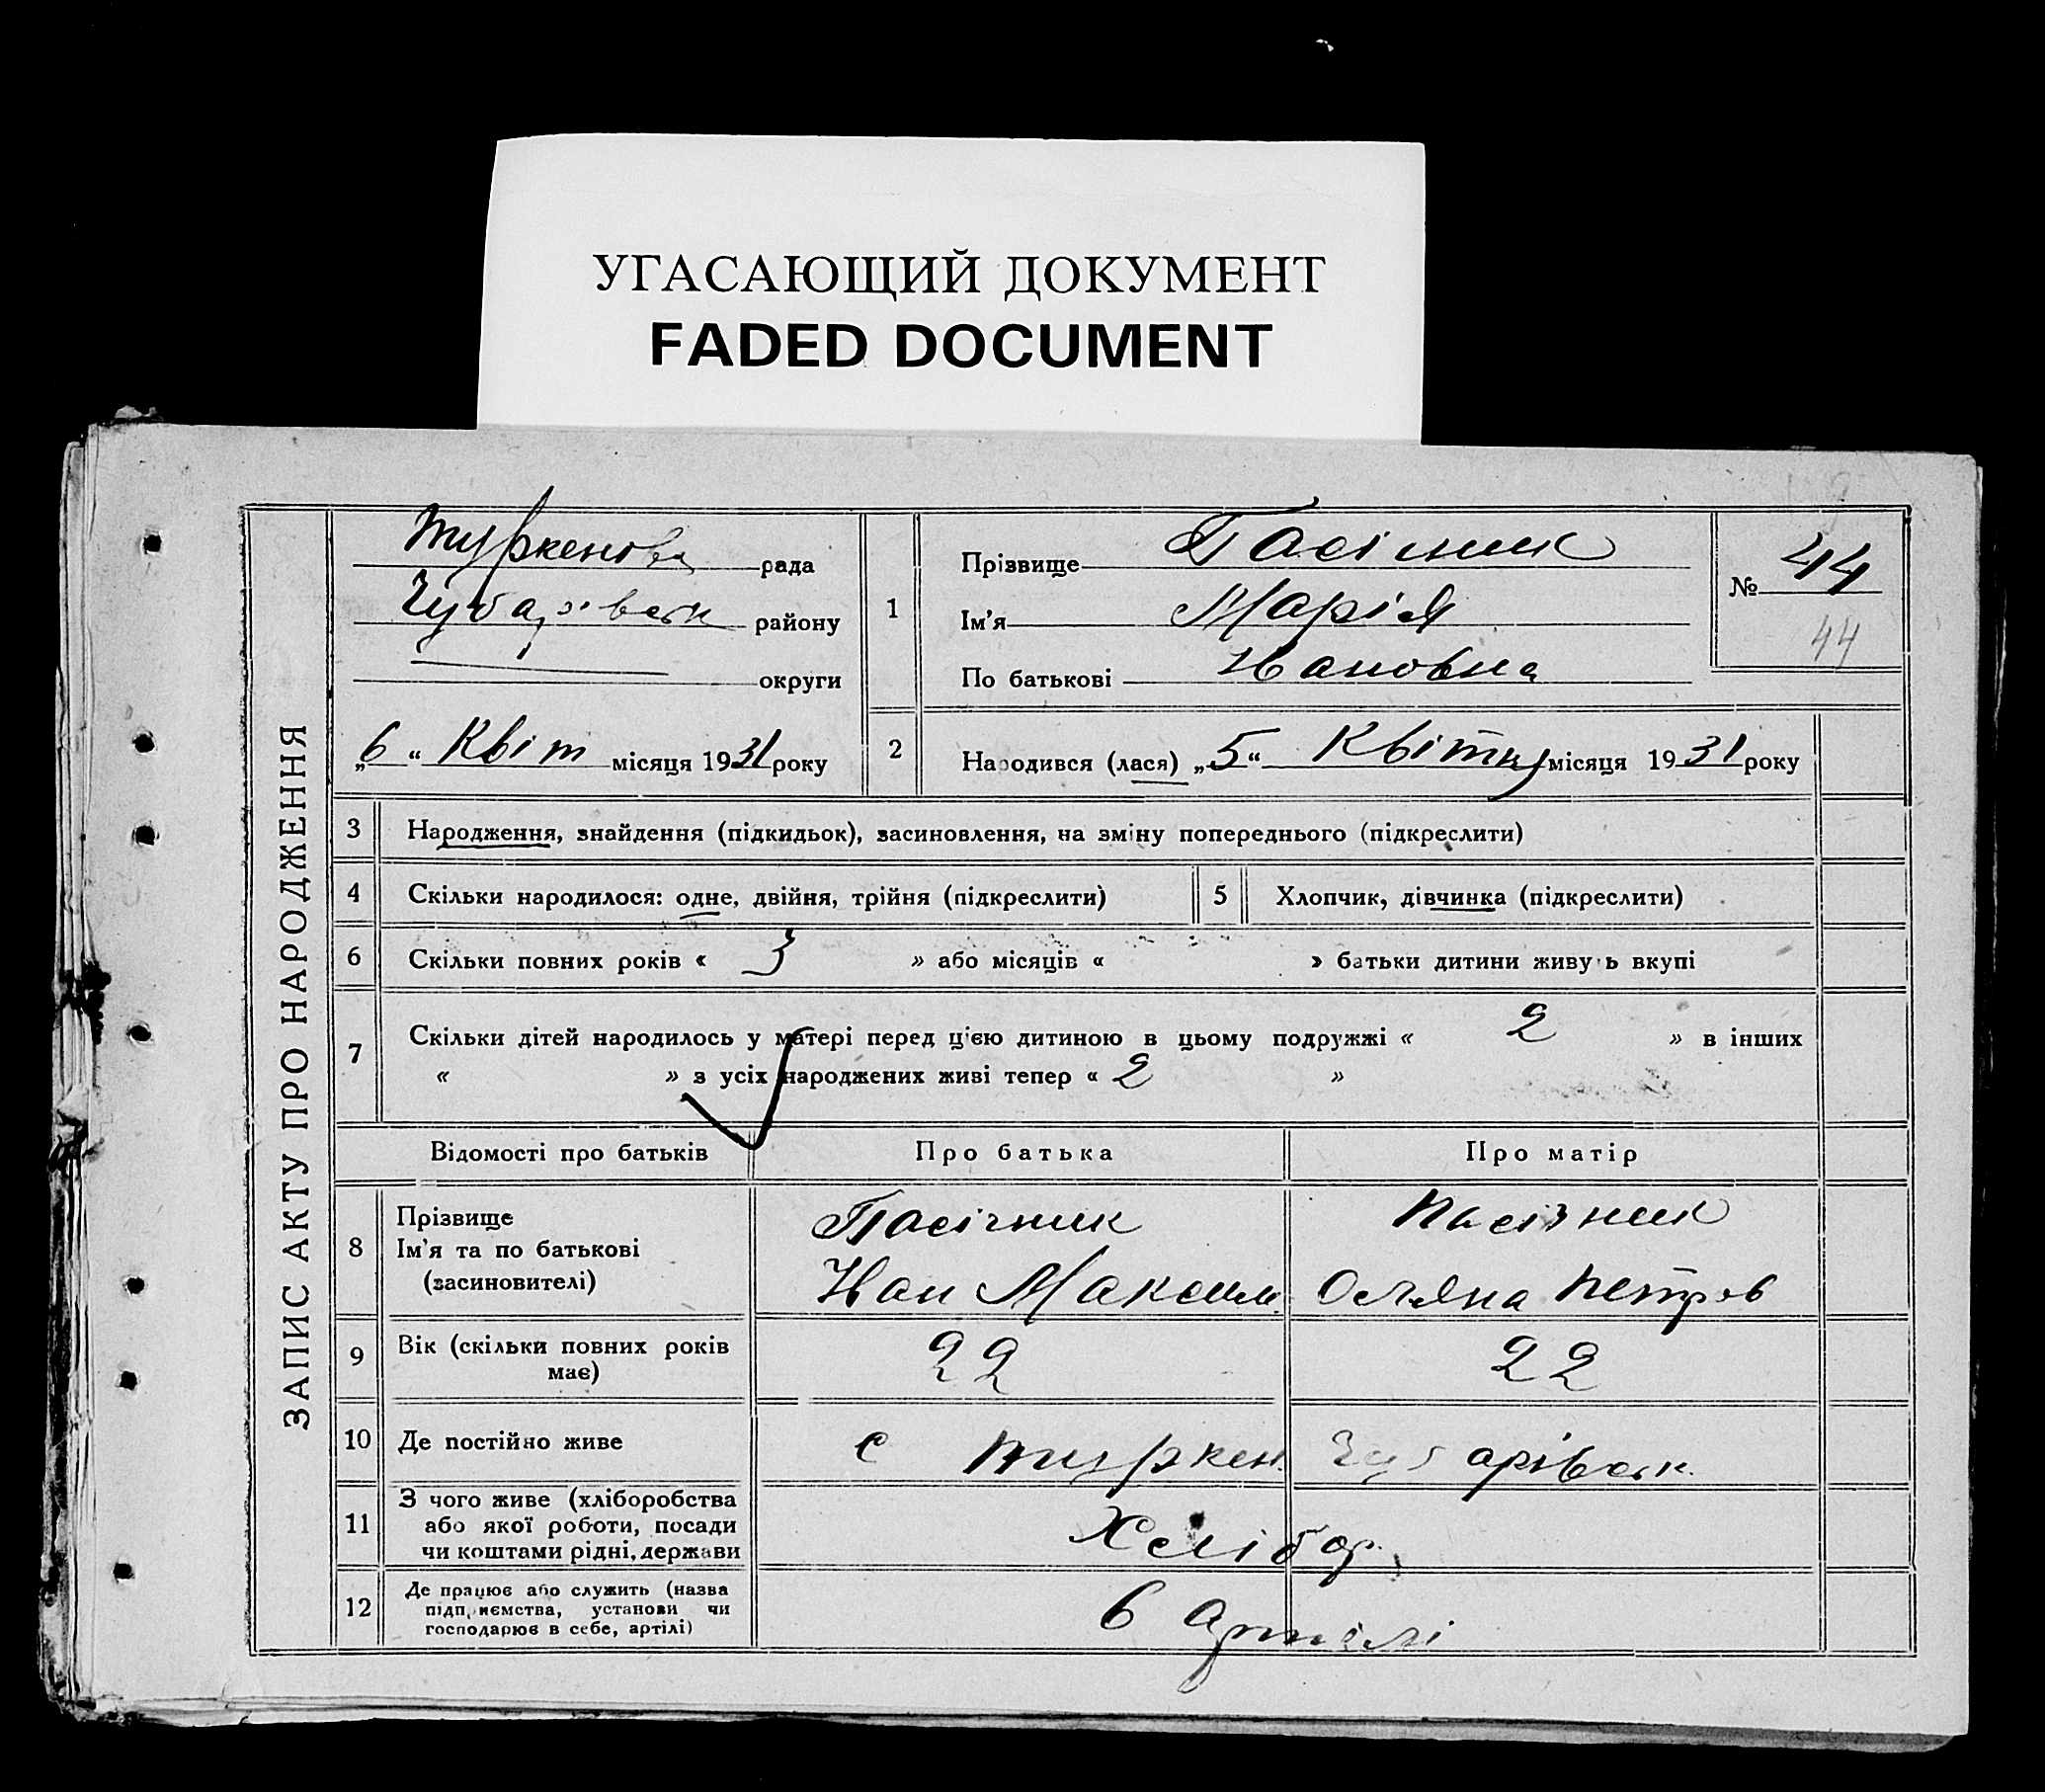 УГАСАЮЩИЙ ДОКУМЕНТ
FADED DOCUMENT
ЗАПИС АКТУ ПРО НАРОДЖЕННЯ
Туркенова рада
Чубарівськ району
округи
„6“ Квіт місяця 1931 року
1
Прізвище Пасічник
Ім'я Марія
По батькові Івановна
№ 44
44
2
Народився (лася) „5“ Квітня місяця 1931 року
3 Народження, знайдення (підкидьок), засиновлення, на зміну попереднього (підкреслити)
4 Скільки народилося: одне, двійня, трійня (підкреслити) 5 Хлопчик, дівчинка (підкреслити)
6 Скільки повних років « 3 » або місяців « » батьки дитини живуть вкупі
7 Скільки дітей народилось у матері перед цією дитиною в цьому подружжі « 2 » в інших
« » з усіх народжених живі тепер « 2 »
Відомості про батьків Про батька Про матір
8 Прізвище Пасічник Пасічник
Ім'я та по батькові
(засиновителі) Іван Максим. Оляна Петров
9 Вік (скільки повних років
має) 22 22
10 Де постійно живе с Туркен. Чубарівськ.
11 З чого живе (хліборобства
або якої роботи, посади
чи коштами рідні, держави Хлібор.
12 Де працює або служить (назва
підприємства, установи чи
господарює в себе, артілі) в артілі